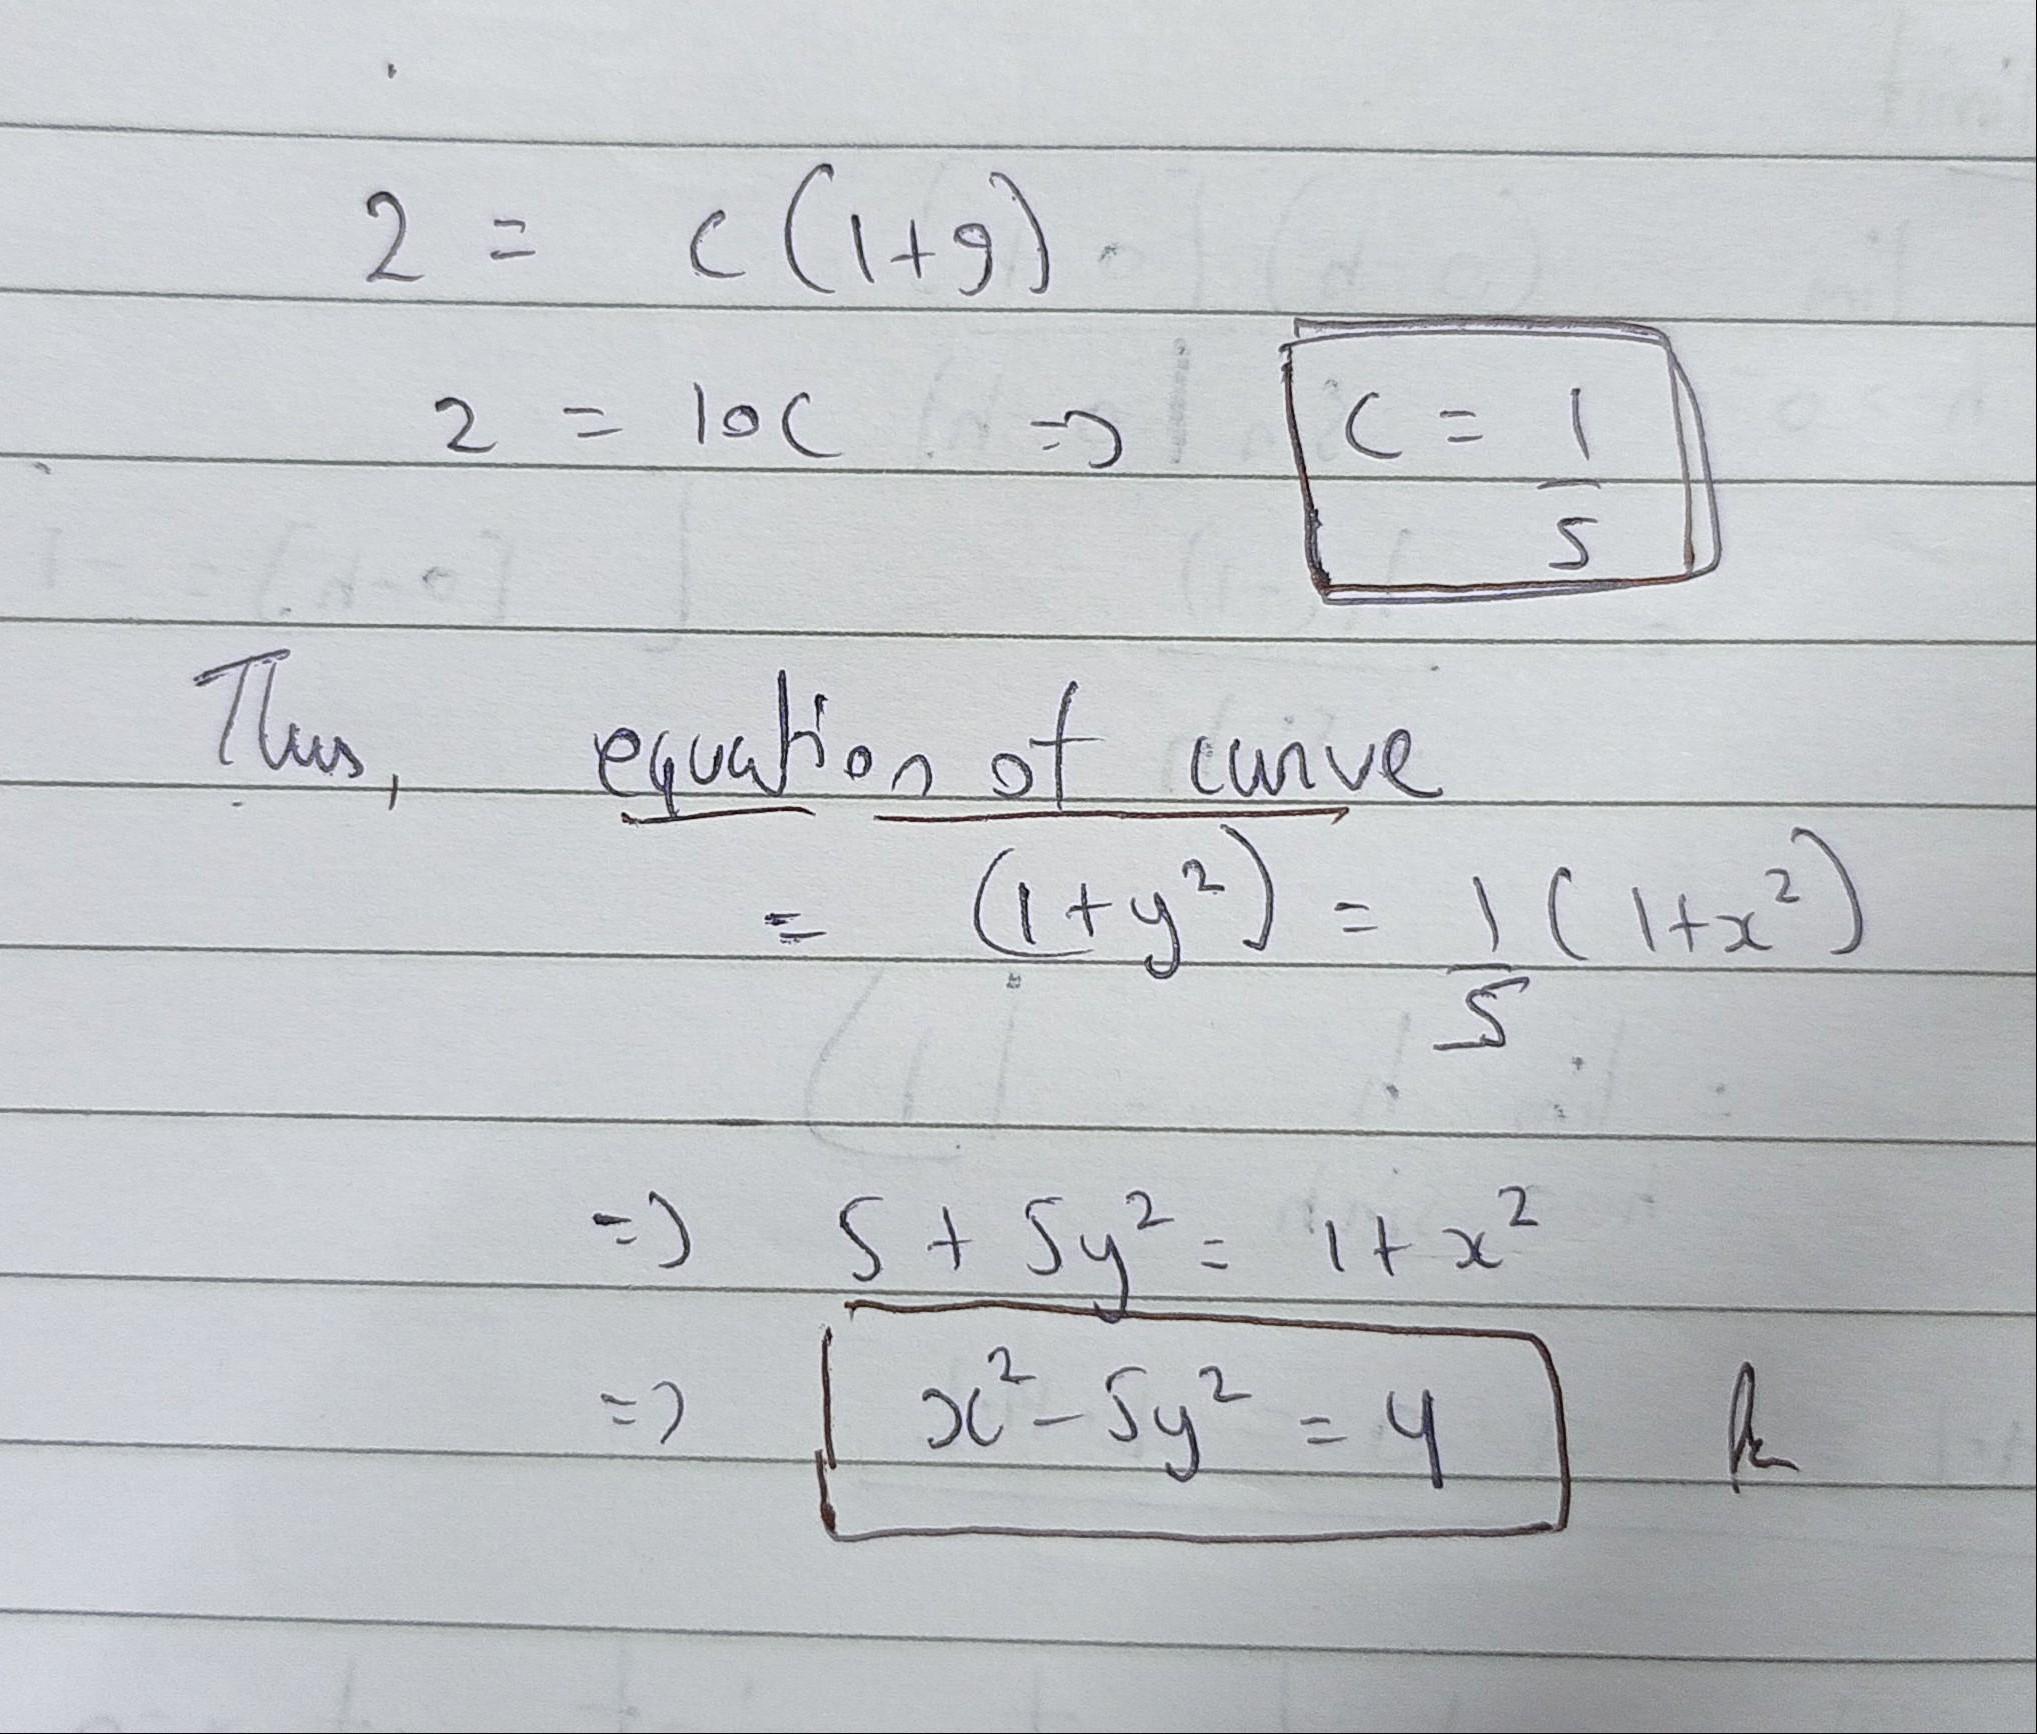 2 = C (1+9)
2 = 10C => C = 1/5
Thus, equation of curve
= (1+y²) = 1/5 (1+x²)
=> 5 + 5y² = 1 + x²
=> x² - 5y² = 4